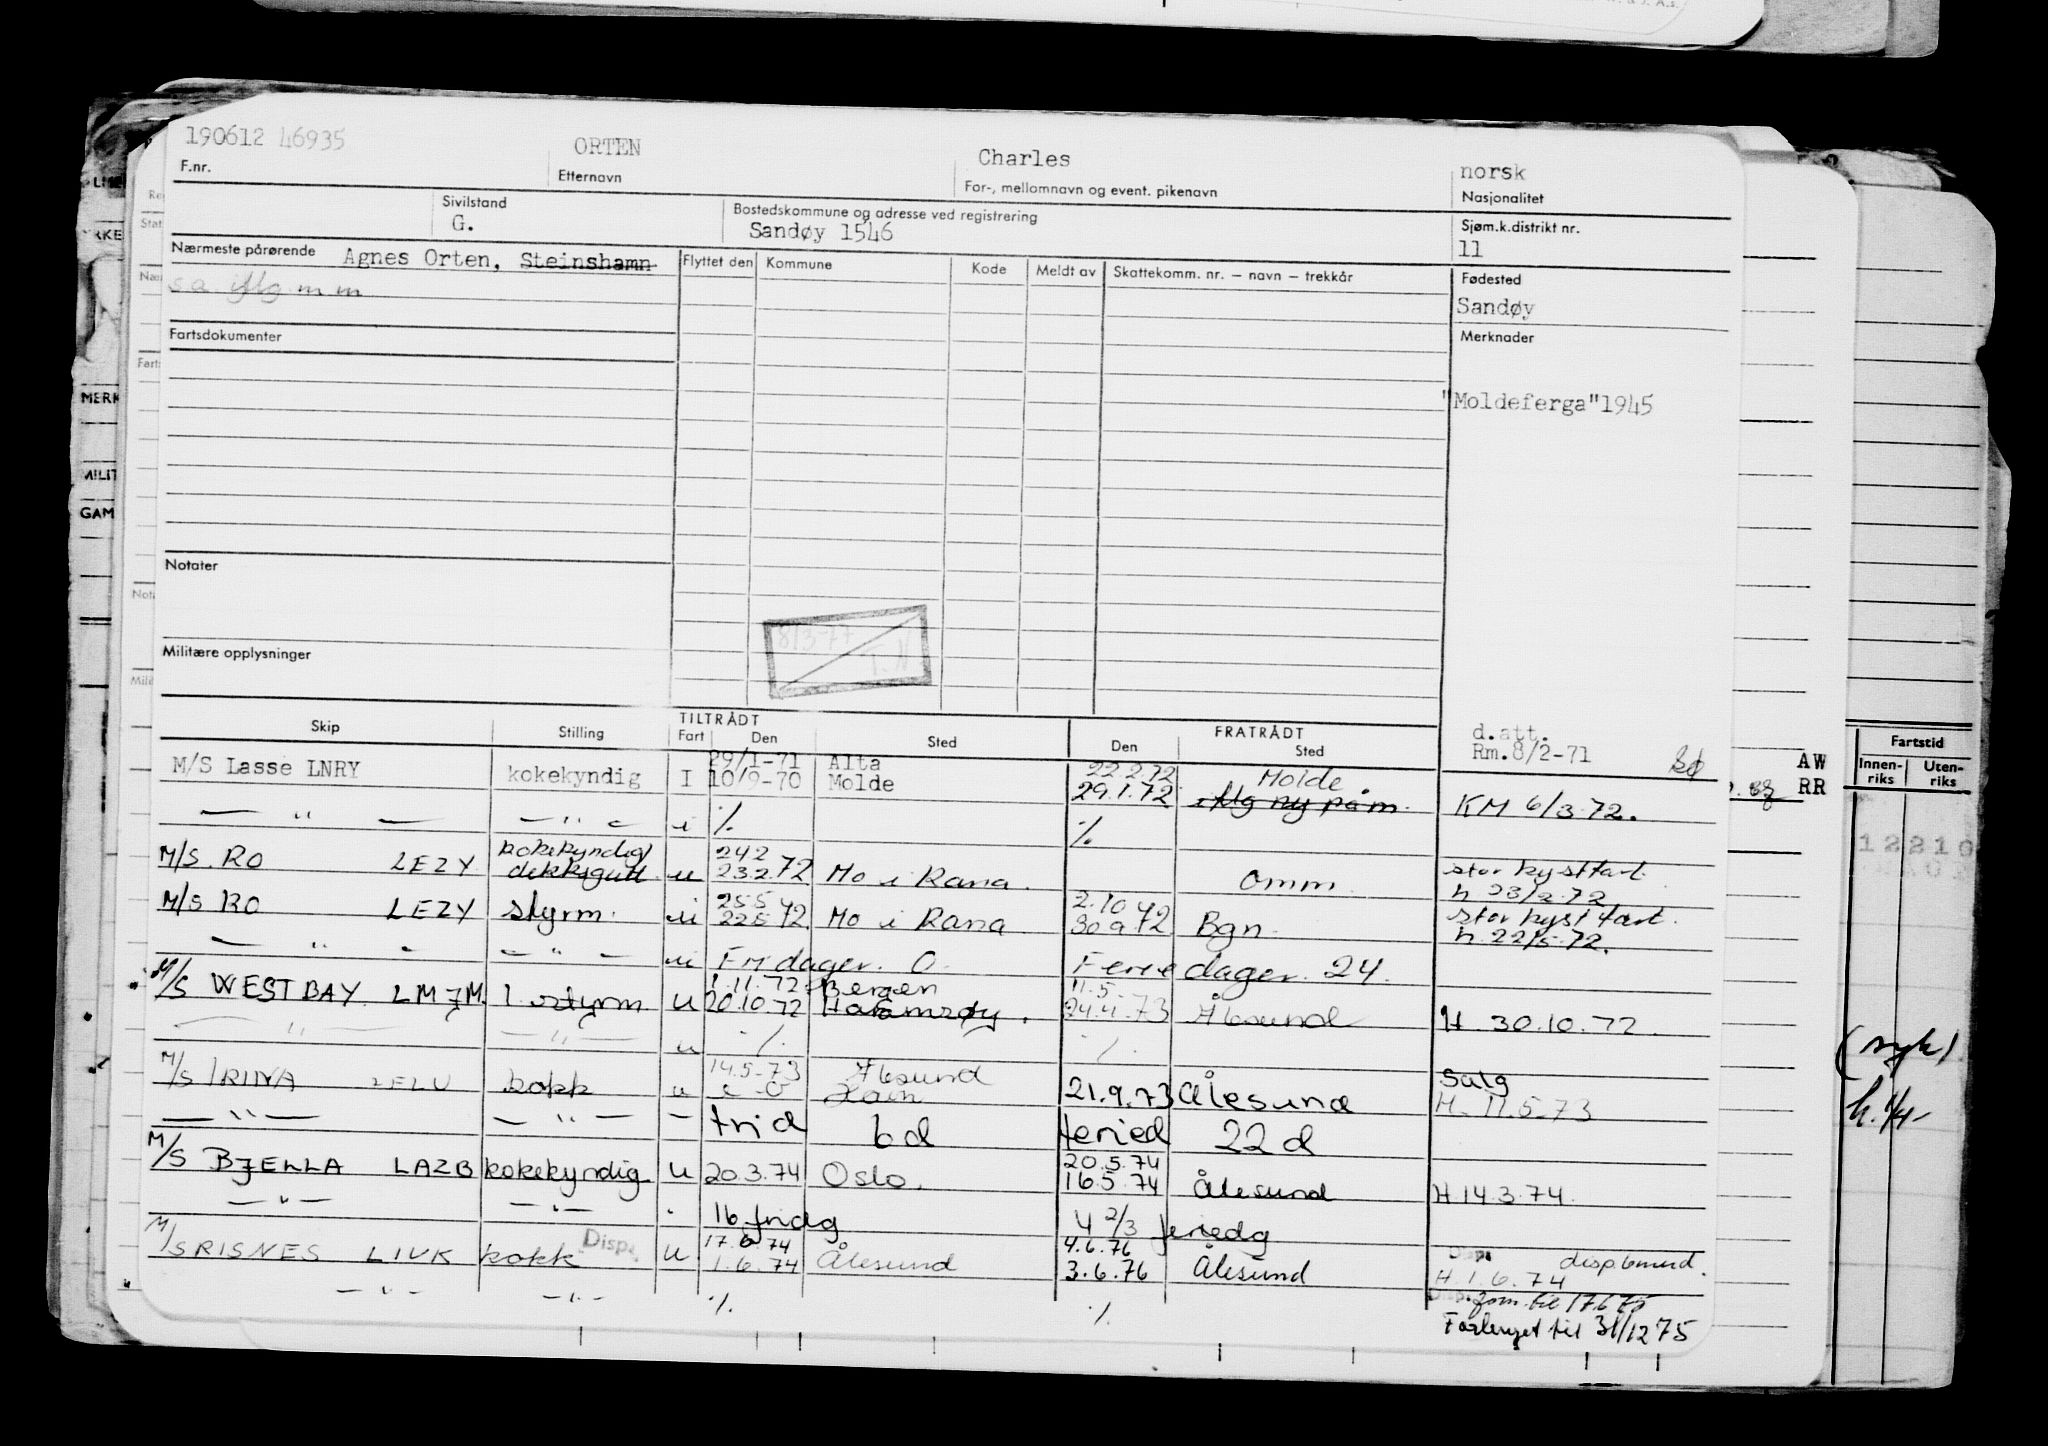 190612 46935
ORTEN
Charles
norsk
F.nr.
Etternavn
For-, mellomnavn og event. pikenavn
Nasjonalitet
Sivilstand
G.
Bostedskommune og adresse ved registrering
Sandøy 1546
Sjøm.k.distrikt nr.
11
Nærmeste pårørende Agnes Orten, Steinshamn
Flyttet den
Kommune
Kode
Meldt av
Skattekomm. nr. – navn – trekkår
Fødested
Sandøy
Fartsdokumenter
Merknader
"Moldeferga"1945
Notater
8/3-77
T.N
Militære opplysninger
Skip
Stilling
TILTRÅDT
Fart
Den
Sted
FRATRÅDT
Den
Sted
d.att.
Rm.8/2-71
M/S Lasse LNRY kokekyndig I 29/1-71 Alta 22.2.72 Molde
10/9-70 Molde 29.1.72 KM 6/3.72.
— " — — " — i ./. ./.
M/S. RO LEZY kokekyndig/ 24.2 stor kystfart
dekksgutt u 23.2.72 Mo i Rana. omm. h 23/2.72
M/S RO LEZY styrm. ui 25.5 2.10 stor kyst fart.
22.5.72. Mo i Rana 30.9.72 Bgn. h. 22/5.72.
— " — — " — ui Fridager. 0. Feriedager. 24.
M/S WESTBAY LMJM. 1 styrm u 1.11.72 Bergen 11.5.
20.10.72 24.4.73 Ålesund H 30.10.72.
— " — — " — u ./. ./.
M/S IRINA kokk u 14.5.73 Ålesund 21.9.73 Ålesund Salg
H. 11.5.73
— " — — " — — frid 6 d feried 22 d
M/S BJELLA LAZB kokekyndig u 20.3.74 Oslo. 20.5.74
16.5.74 Ålesund H.14.3.74.
— " — — " — 16 fridg 4 2/3 feriedg
M/S RISNES LIUK kokk Disp. u 17.6.74 4.6.76 Disp.
1.6.74 Ålesund 3.6.76 Ålesund H.1.6.74
— " — — " — ./. ./. til 17.6.75
Forlenget til 31/12 75
Fartstid
Innen-
riks
Uten-
riks
AW
RR
(syk)
MERK
MILIT
GAM